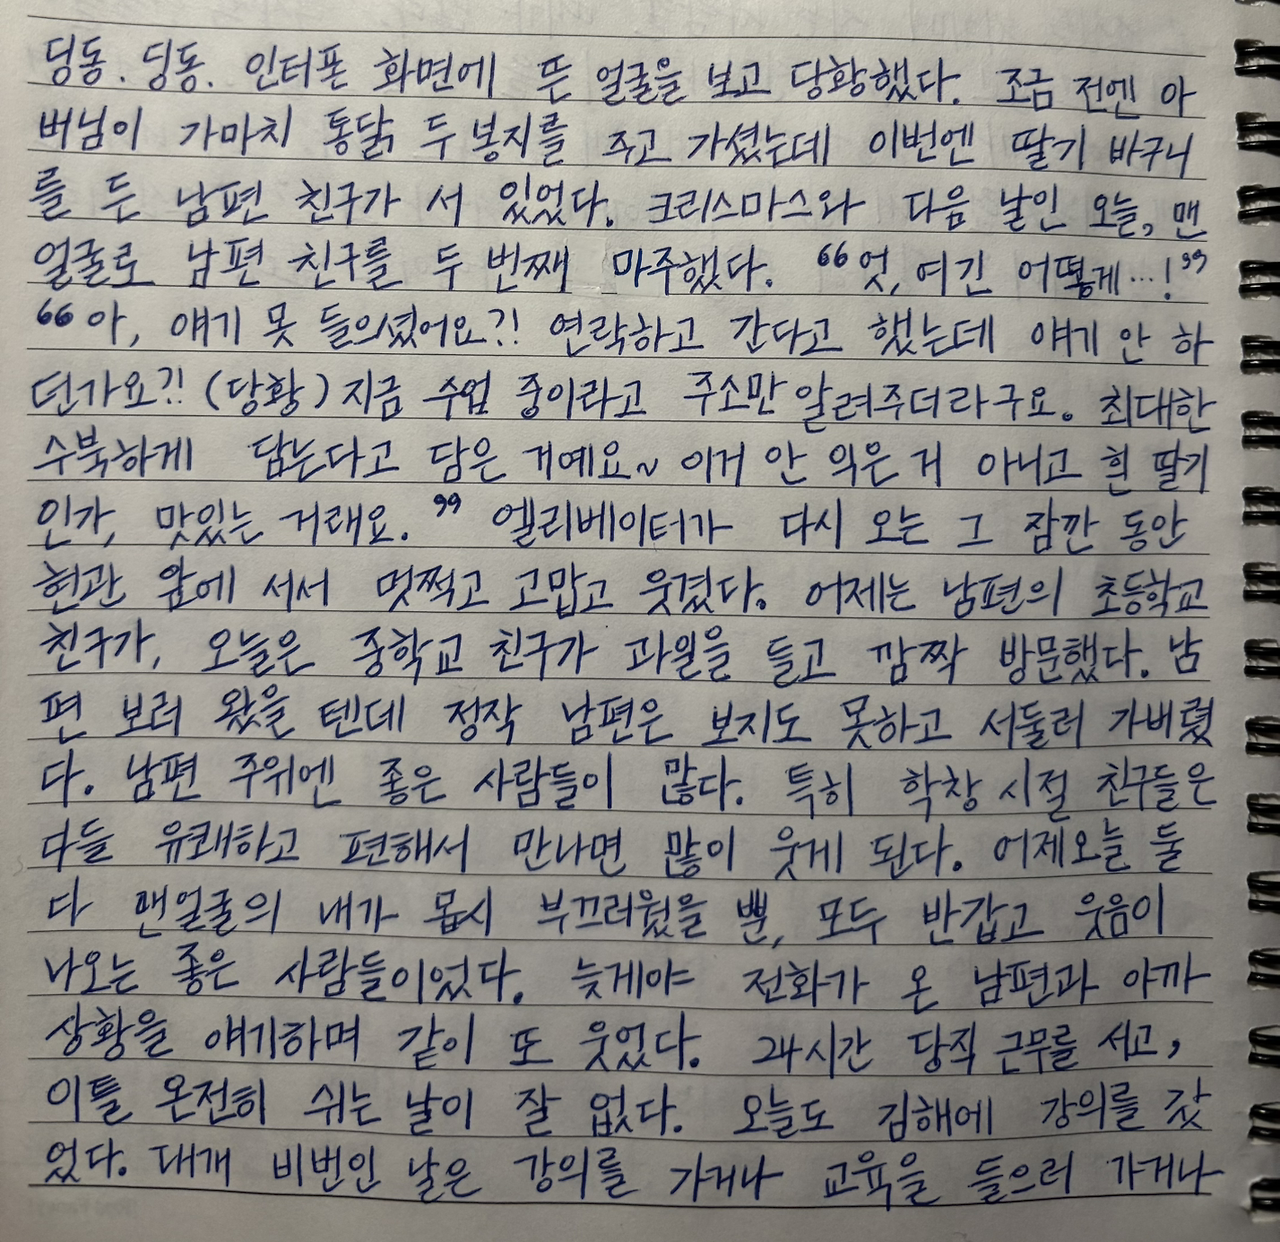 딩동. 딩동. 인터폰 화면에 뜬 얼굴을 보고 당황했다. 조금 전엔 아
버님이 가마치 통닭 두 봉지를 주고 가셨는데 이번엔 딸기 바구니
를 든 남편 친구가 서 있었다. 크리스마스와 다음 날인 오늘, 맨
얼굴로 남편 친구를 두 번째 마주했다. “엇, 여긴 어떻게…!”
“아, 얘기 못 들으셨어요?! 연락하고 간다고 했는데 얘기 안 하
던가요?! (당황) 지금 수업 중이라고 주소만 알려주더라구요. 최대한
수북하게 담는다고 담은 거예요~ 이거 안 익은 거 아니고 흰 딸기
인가, 맛있는 거래요.” 엘리베이터가 다시 오는 그 잠깐 동안
현관 앞에 서서 멋쩍고 고맙고 웃겼다. 어제는 남편의 초등학교
친구가, 오늘은 중학교 친구가 과일을 들고 깜짝 방문했다. 남
편 보러 왔을 텐데 정작 남편은 보지도 못하고 서둘러 가버렸
다. 남편 주위엔 좋은 사람들이 많다. 특히 학창 시절 친구들은
다들 유쾌하고 편해서 만나면 많이 웃게 된다. 어제오늘 둘
다 맨얼굴의 내가 몹시 부끄러웠을 뿐, 모두 반갑고 웃음이
나오는 좋은 사람들이었다. 늦게야 전화가 온 남편과 아까
상황을 얘기하며 같이 또 웃었다. 24시간 당직 근무를 서고,
이틀 온전히 쉬는 날이 잘 없다. 오늘도 김해에 강의를 갔
었다. 대개 비번인 날은 강의를 가거나 교육을 들으러 가거나